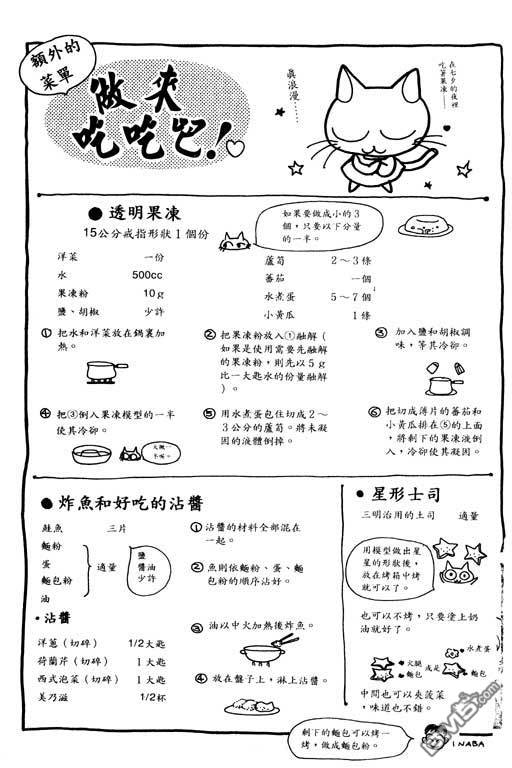 額外的
菜單
做來
吃吃吧!
真浪漫…
在七夕的夜裡
吃著果凍——
● 透明果凍
15公分戒指形狀1個份
如果要做成小的3
個,只要以下分量
的一半。
洋菜 一份
水 500cc
果凍粉 10g
鹽、胡椒 少許
蘆筍 2～3條
蕃茄 一個
水煮蛋 5～7個
小黃瓜 1條
① 把水和洋菜放在鍋裏加
熱。
② 把果凍粉放入①融解(
如果是使用需要先融解
的果凍粉,則先以5g
比一大匙水的份量融解
)。
③ 加入鹽和胡椒調
味,等其冷卻。
④ 把③倒入果凍模型的一半
使其冷卻。
⑤ 用水煮蛋包住切成2～
3公分的蘆筍。將未凝
固的液體倒掉。
⑥ 把切成薄片的蕃茄和
小黃瓜排在⑤的上面
,將剩下的果凍液倒
入,冷卻使其凝固。
● 炸魚和好吃的沾醬
鮭魚 三片
麵粉
蛋
麵包粉
油
適量
鹽
醬油
少許
・沾醬
洋蔥(切碎) 1/2大匙
荷蘭芹(切碎) 1大匙
西式泡菜(切碎) 1大匙
美乃滋 1/2杯
① 沾醬的材料全部混在
一起。
② 魚則依麵粉、蛋、麵
包粉的順序沾好。
③ 油以中火加熱後炸魚。
④ 放在盤子上,淋上沾醬。
● 星形土司
三明治用的土司 適量
用模型做出星
星的形狀後,
放在烤箱中烤
就可以了。
也可以不烤,只要塗上奶
油就好了。
水煮蛋
火腿
麵包
或是
麵包
中間也可以夾菠菜
,味道也不錯。
剩下的麵包可以烤一
烤,做成麵包粉。
INABA